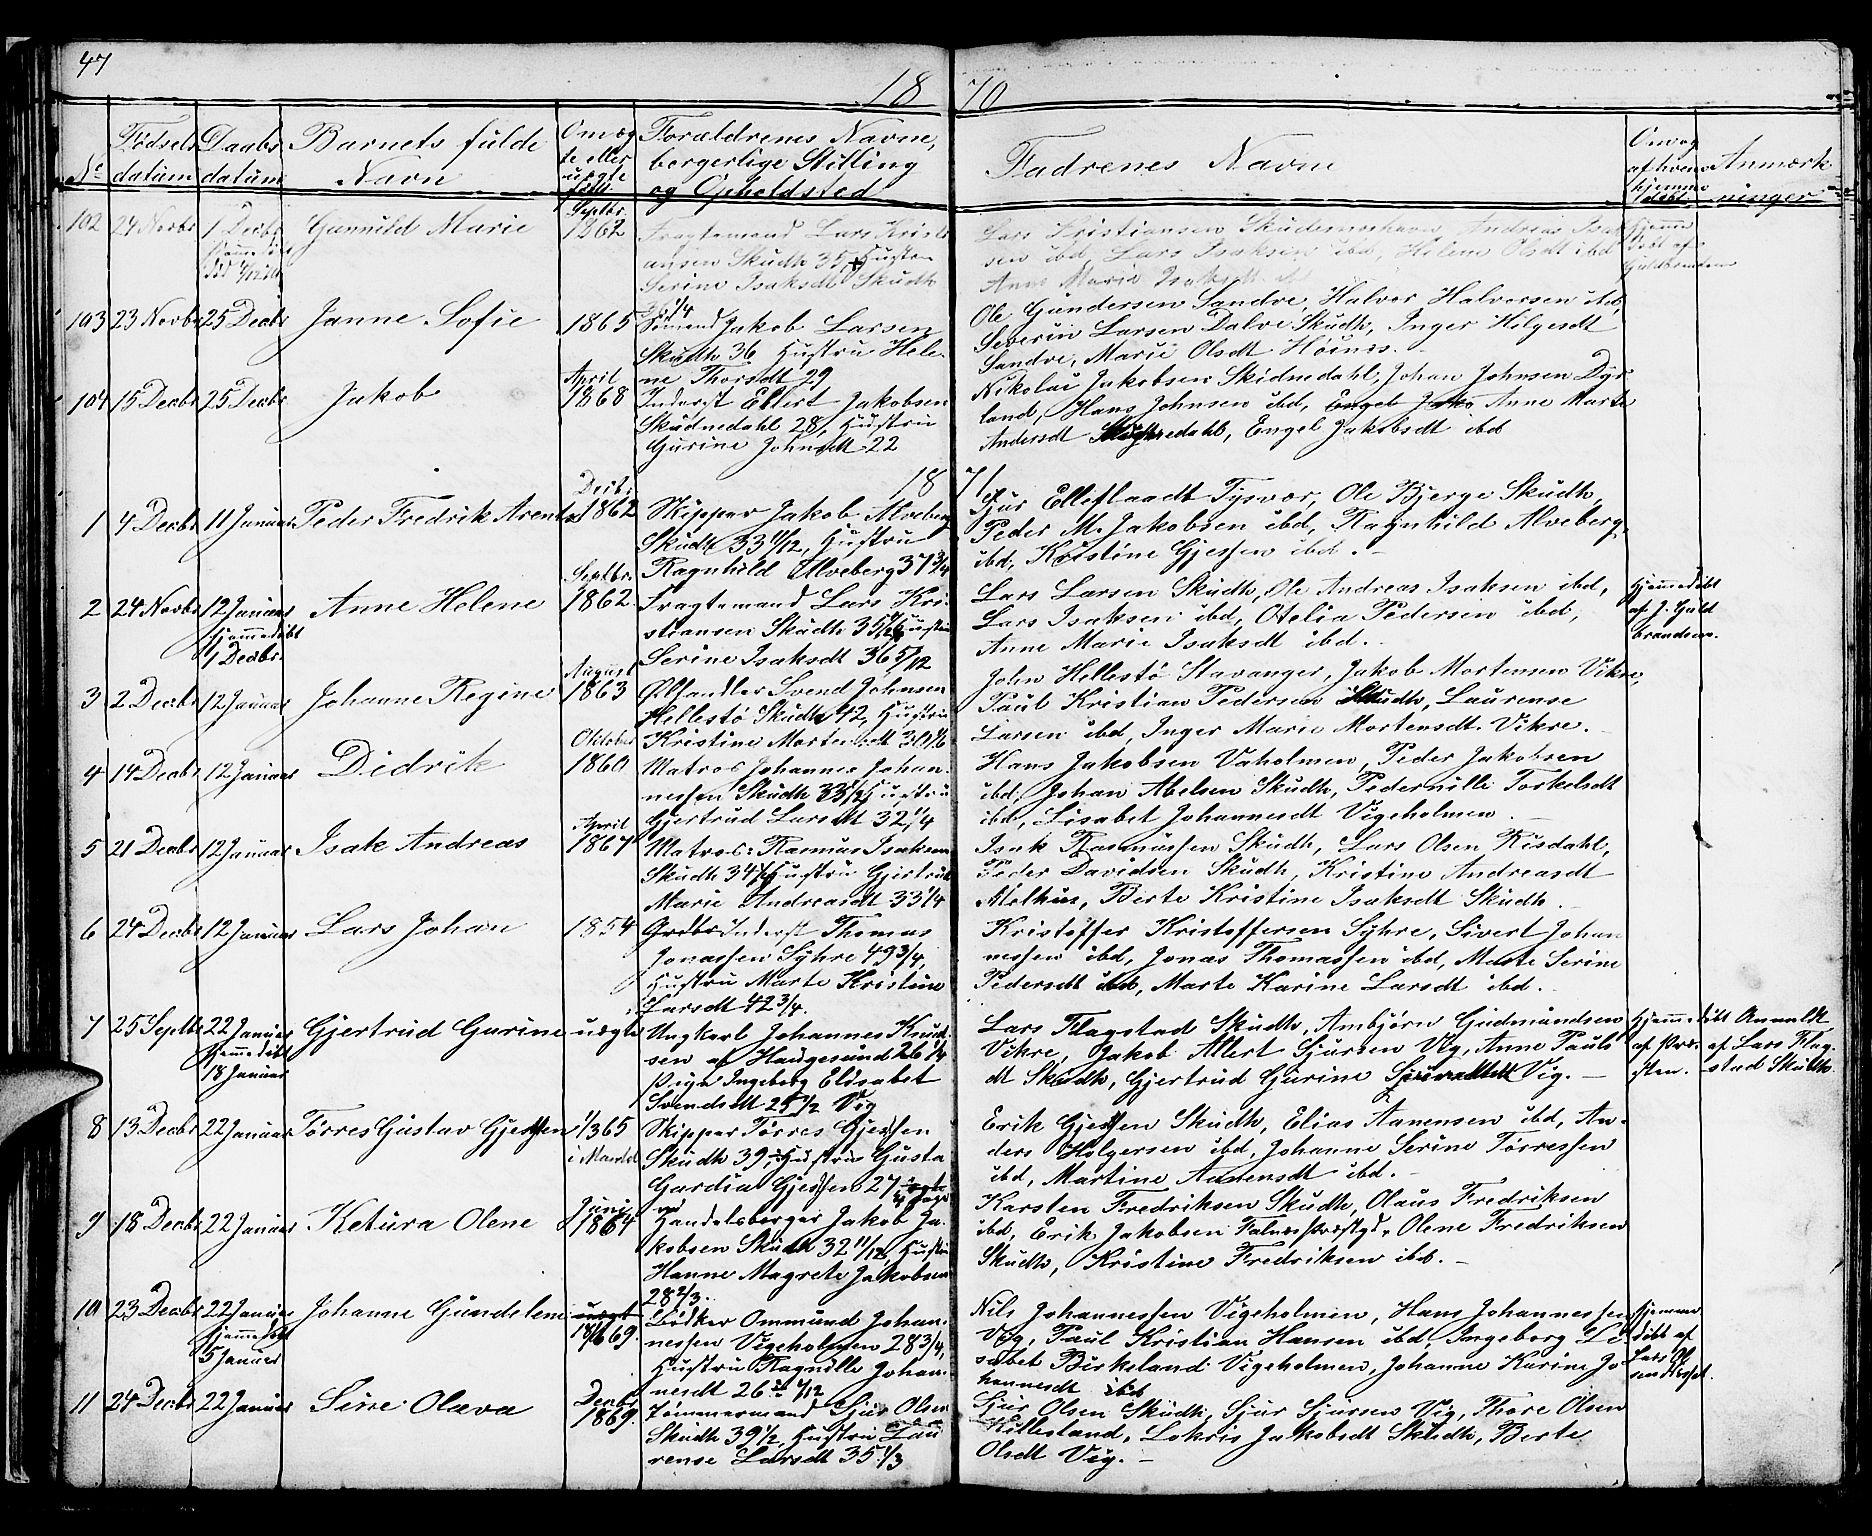 47
18 70
No
Fødsels datum
Daabs datum
Barnets fulde Navn
Om æg te eller uægte født
Forældrenes Navne, borgerlige Stilling og Opholdsted
Fadrenes Navne
Om og af hvem hjemme døbt
Anmærk ninger
102 24 Novbr 1 Decbr Gunnild Marie Septbr. 1862
Fragtemand Lars Kristi
ansen Skudh 35, Hustru
Serine Isaksdt Skudh
36 1/4
Lars Kristiansen Skudesneshavn, Andreas Isak
sen ibd, Lars Isaksen ibd, Helene Olsdt ibd
Anne Marie Isaksdt
103 23 Novbr 25 Decbr Janne Sofie 1865
Sømand Jakob Larsen
Skudh 36 Hustru Hele-
ne Thorsdt 29
Ole Gundersen Sandve, Halvor Halvorsen ibd,
Severin Larsen Dalve Skudh, Inger Helgesdt
Sandve, Marie Olsdt Høines.
104 15 Decbr 25 Decbr Jakob April 1868
Inderst Ellert Jakobsen
Skudnedahl 28, Hustru
Gurine Johnsdt 22
Nikolai Jakobsen Skidnedahl, Johan Johnsen Dyr
land, Hans Johnsen ibd, Engel Jako Anne Marte
Andersdt Skudnedahl, Engel Jakobsdt ibd
18 71
1 4 Decbr 11 Januar Peder Fredrik Arentz Decbr. 1862
Skipper Jakob Alveberg
Skudh 33 11/12, Hustru
Ragnhild Alveberg 37 3/4
Sjur Tysvær, Ole Bjerge Skudh,
Peder M. Jakobsen ibd, Ragnhild Alveberg,
ibd, Kristine Gjessen ibd. -
2 24 Novbr 12 Januar Anne Helene Septbr. 1862
Hjemmedøbt
1 Decbr.
Fragtemand Lars Kri-
stiansen Skudh 35 Hustru
Serine Isaksdt 36 5/12
Lars Larsen Skudh, Ole Andreas Isaksen ibd,
Lars Isaksen ibd, Otelia Pedersen ibd,
Anne Marie Isaksdt ibd.
Hjemmedøbt
af J. Guld
brandsen.
3 2 Decbr 12 Januar Johanne Regine August 1863
Ølhandler Svend Johnsen
Hellestø Skudh 42, Hustru
Kristine Mortensdt 30 1/6
John Hellestø Stavanger, Jakob Mortensen Vikre,
Paul Kristian Pedersen Skudh, Laurense
Larsen ibd, Inger Marie Mortensdt. Vikre.
4 14 Decbr 12 Januar Didrik Oktober 1860
Matros Johannes Johan-
nessen Skudh 33 1/2 Hustru
Gjertrud Larsdt 32 1/4
Hans Jakobsen Vaholmen, Peder Jakobsen
ibd, Johan Abelsen Skudh, Pedernille Torkelsdt
ibd, Lisabet Johannesdt Vigeholmen.
5 21 Decbr 12 Januar Isak Andreas April 1867
Matros: Rasmus Isaksen
Skudh 34 Hustru Gjertrud
Marie Andreasdt 33 1/4
Isak Rasmussen Skudh, Lars Olsen Risdahl,
Peder Davidsen Skudh, Kristine Andreasdt
Melhus, Berte Kristine Isaksdt Skudh.
6 24 Decbr 12 Januar Lars Johan 1854
Inderst Thomas
Jonassen Syhre 49 3/4,
Hustru Marte Kristine
Larsdt 42 3/4.
Kristoffer Kristoffersen Syhre, Sivert Johan
nessen ibd, Jonas Thomassen ibd, Marte Serine
Pedersdt ibd, Marte Karine Larsdt ibd.
7 25 Septbr 22 Januar Gjertrud Gurine uægte
Hjemmedøbt
18 Januar
Ungkarl Johannes Knud-
sen af Haugesund 26 1/4
Pige Ingeborg Elisabet
Svendsdt 25 1/2 Vig
Lars Flagstad Skudh, Ambjørn Gudmundsen
Vikre, Jakob Allert Sjursen Vig, Anne Pauls
dt Skudh, Gjertrud Gurine Vig. -
Hjemmedøbt
af Præ-
sten.
Anmeldt
af Lars Flag-
stad Skudh.
8 13 Decbr 22 Januar Tørres Gustav Gjessen 1/3 65
i Mandal
Skipper Tørres Gjessen
Skudh 39, Hustru Gusta
Gardia Gjessen 27,
Erik Gjessen Skudh, Elias Aanensen ibd, An-
ders Holgersen ibd, Johanne Serine Tørressen
ibd, Martine Aanensdt ibd.
9 18 Decbr 22 Januar Ketura Olene Juni 1864
Handelsborger Jakob Ja-
kobsen Skudh 32 11/12, Hustru
Hanne Magrete Jakobsen
28 2/3.
Karsten Fredriksen Skudh, Olaus Fredriksen
ibd, Erik Jakobsen Falnes Præstgd, Olene Fredriksen
Skudh, Kristine Fredriksen ibd. -
10 23 Decbr 22 Januar Johanne Gundelene uægt
Hjemmedøbt
5 Januar
18/6 69.
Bødker Ommund Johan-
nessen Vigeholmen 28 3/4,
Hustru Ragnille Johan-
nesdt 26
Nils Johannessen Vigeholmen, Hans Johannessen
Vig, Paul Kristian Hansen ibd, Ingeborg Li
sabet Birkeland Vigeholmen, Johanne Karine Jo
hannesdt ibd
Hjemme
døbt af
Lars Ol
sen
11 24 Decbr 22 Januar Sine Olava Decbr 1869.
Tømmermand Sjur Olsen
Skudh 39 1/2, Hustru Lau
rense Larsdt 35 1/3
Sjur Olsen Skudh, Sjur Sjursen Vig, Thore Olsen
Killesland, Lokris Jakobsdt Skudh, Berte
Olsdt Vig. -